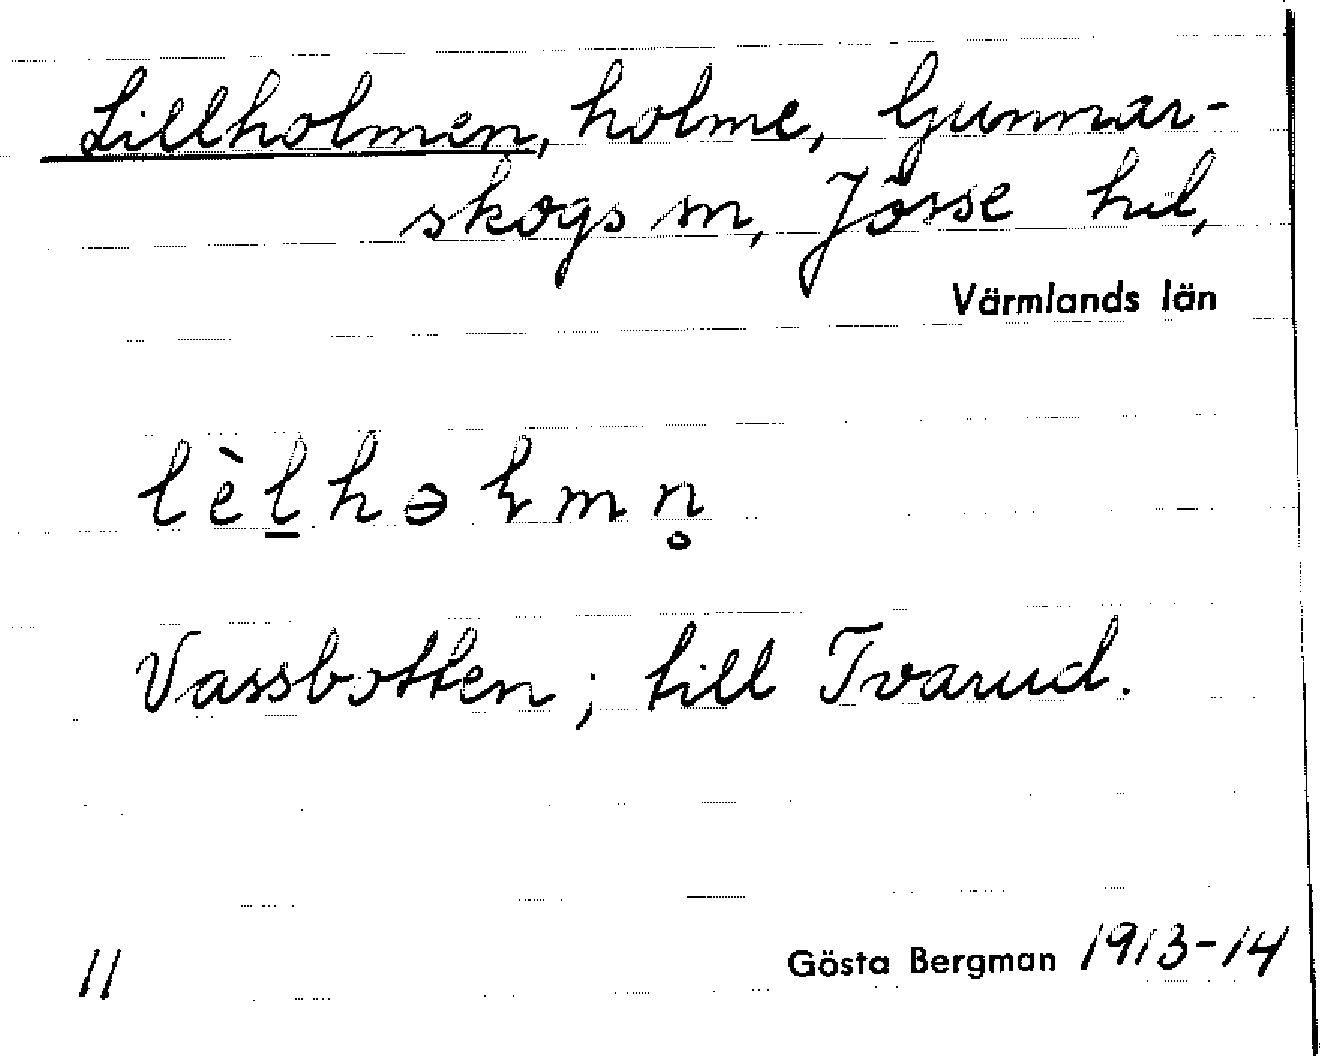 Lillholmen, holme, Gunnar-
skogs sn, Jösse hd,
Värmlands län
lèl̲hɘɽmn̥
Vassbotten; till Tvarud.
11
Gösta Bergman 1913-14